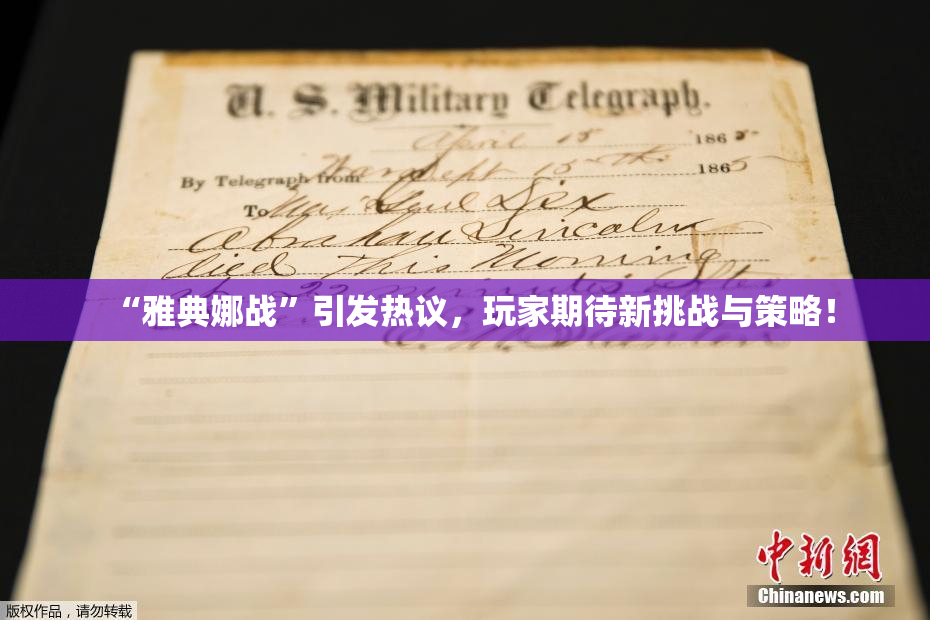 U. S. Military Telegraph.
April 15 1865
By Telegraph from War Dept 15th 1865
To Maj Genl Dix
Abraham Lincoln
died This Morning
at 22 minutes after
“雅典娜战”引发热议，玩家期待新挑战与策略！
E. M. Stanton
中新网
Chinanews.com
版权作品，请勿转载